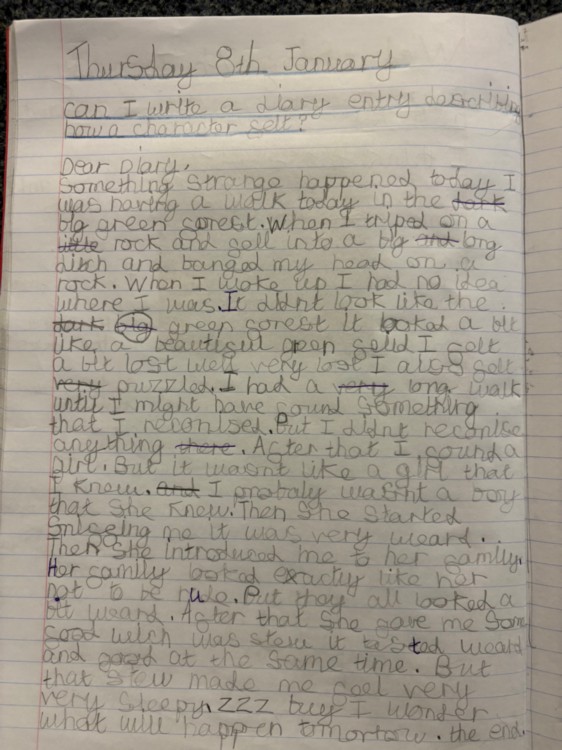 Thursday 8th January
can I write a diary entry describing
how a character felt?
Dear Diary,
Something strange happened today I
was having a walk today in the dark
big green forest. When I triped on a
little rock and fell into a big and long
ditch and banged my head on a
rock. When I woke up I had no idea
where I was. It didnt look like the
dark big green forest it lookad a bit
like a beautiful green feild I felt
a bit lost well very lost I also felt
very puzzled. I had a very long walk
until I might have found Something
that I reconised. But I didnt reconise
anything there. After that I found a
girl. But it wasnt like a girl that
I Knew. and I probaly wasnt a boy
that She Knew. Then She Started
Sniffing me it was very weard.
Then She introduced me to her family.
Her family looked exactly like her
not to be rude. But they all looked a
bit weard. After that She gave me Som
food wich was stew it tasted weard
and good at the Same time. But
that Stew made me feel very
very Sleepy. ZZZ buy I wonder
what will happen tomorrow. the end.